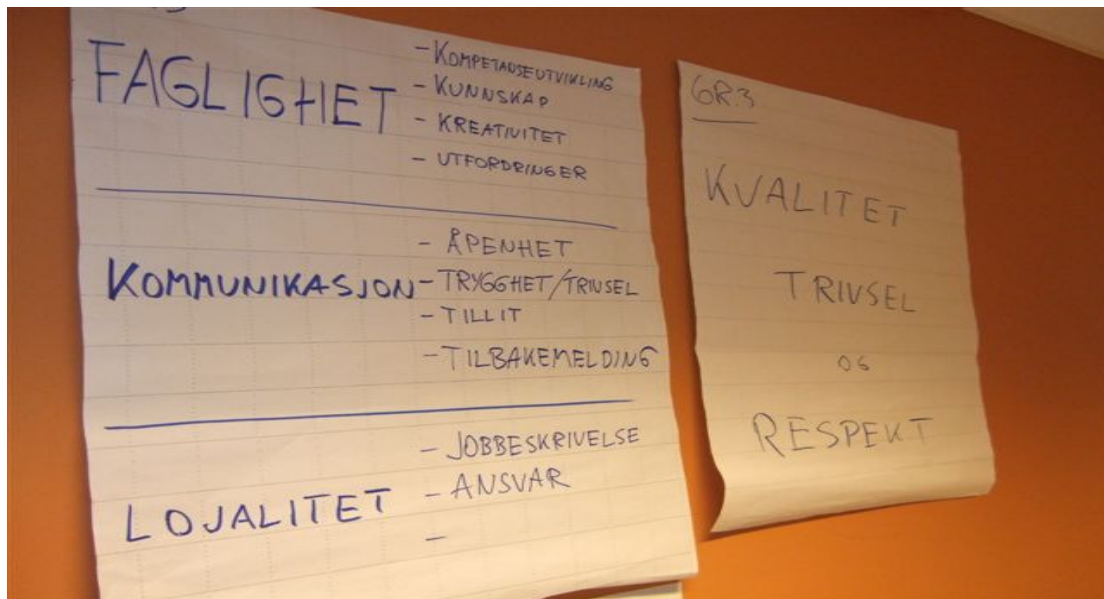 FAGLIGHET
- KOMPETANSEUTVIKLING
- KUNNSKAP
- KREATIVITET
- UTFORDRINGER
KOMMUNIKASJON
- ÅPENHET
- TRYGGHET/TRIVSEL
- TILLIT
- TILBAKEMELDING
LOJALITET
- JOBBESKRIVELSE
- ANSVAR
-
GR.3
KVALITET
TRIVSEL
OG
RESPEKT